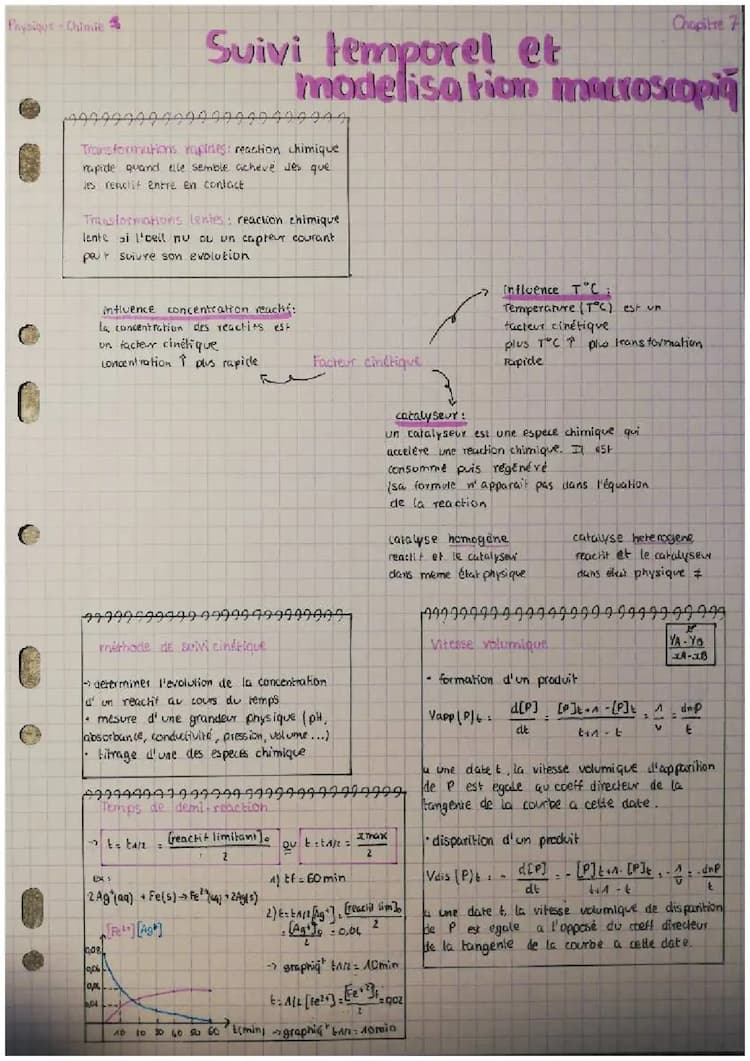 Physique - Chimie
Chapitre 7
Suivi temporel et
modelisation macroscopiq
Transformations rapides: reaction chimique
rapide quand elle semble acheve dès que
les reactif entre en contact
Transformations lentes: reaction chimique
lente si l'oeil nu ou un capteur courant
peut suivre son evolution
influence concentration reactif:
la concentration des reactifs est
un facteur cinétique
concentration ↑ plus rapide
Facteur cinétique
influence T°C :
Temperature (T°C) est un
facteur cinétique
plus T°C ↑ plus transformation
rapide
catalyseur:
un catalyseur est une espece chimique qui
accelère une reaction chimique. Il est
consommé puis régénéré
(sa formule n'apparait pas dans l'équation
de la reaction
catalyse homogène
reactif et le catalyseur
dans meme état physique
catalyse heterogene
reactif et le catalyseur
dans état physique ≠
méthode de suivi cinétique
→ determiner l'evolution de la concentration
d'un reactif au cours du temps
• mesure d'une grandeur physique (pH,
absorbance, conductivité, pression, volume...)
• titrage d'une des especes chimique
Vitesse volumique
YA - YB
xA - xB
• formation d'un produit
Vapp(P)t = d[P]/dt = [P]t+1 - [P]t / t+1 - t = 1/v = dnP/t
une date t, la vitesse volumique d'apparition
de P est egale au coeff directeur de la
tangente de la courbe a cette date.
• disparition d'un produit
Vdis(P)t = - d[P]/dt = - [P]t+1 - [P]t / t+1 - t = - 1/v = - dnP/t
une date t, la vitesse volumique de disparition
de P est egale a l'opposé du coeff directeur
de la tangente de la courbe a cette date.
Temps de demi-reaction
→ t = t1/2 = [reactif limitant]0 / 2 ou t = t1/2 = xmax / 2
ex:
2Ag⁺(aq) + Fe(s) → Fe²⁺(aq) + 2Ag(s)
[Fe²⁺] [Ag⁺]
0,08
0,06
0,04
10 20 30 40 50 60 t(min)
1) tf = 60 min
2) t = t1/2 [Ag⁺] = [reactif lim]0 / 2
= [Ag⁺]0 / 2 = 0,04
→ graphiqt t1/2 = 10min
t = 1/2 [Fe²⁺] = [Fe⁺²]f / 2 = 0,02
→ graphiqt t1/2 = 10min